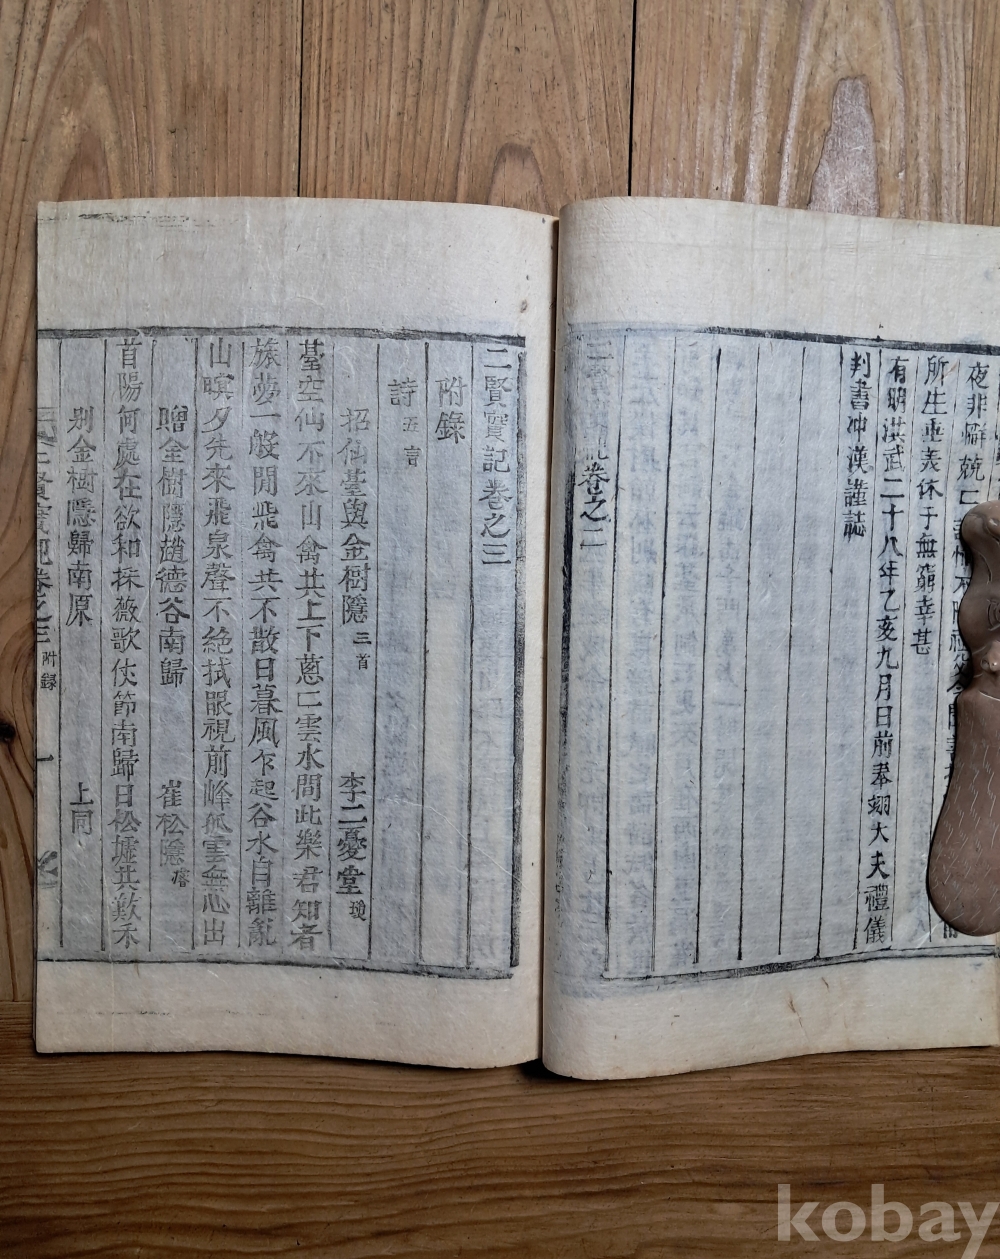 夜非
所生垂美休于無窮幸甚
有明洪武二十八年乙亥九月日前奉翊大夫禮儀
判書冲漢謹誌
卷之二
二賢實記卷之三
附錄
詩 五言
招仙臺與金樹隱 三首 李二憂堂 瓊
臺空仙不來山禽共上下蔥〻雲水間此樂君知者
旅夢一般閒飛禽共不散日暮風乍起谷水自離亂
山暝夕先來飛泉聲不絶拭眼視前峰孤雲無心出
贈金樹隱趙德谷南歸 崔松隱
首陽何處在欲和採薇歌伏節南歸日松墟共歎禾
別金樹隱歸南原 上同
二賢實記卷之三 附録 一
kobay